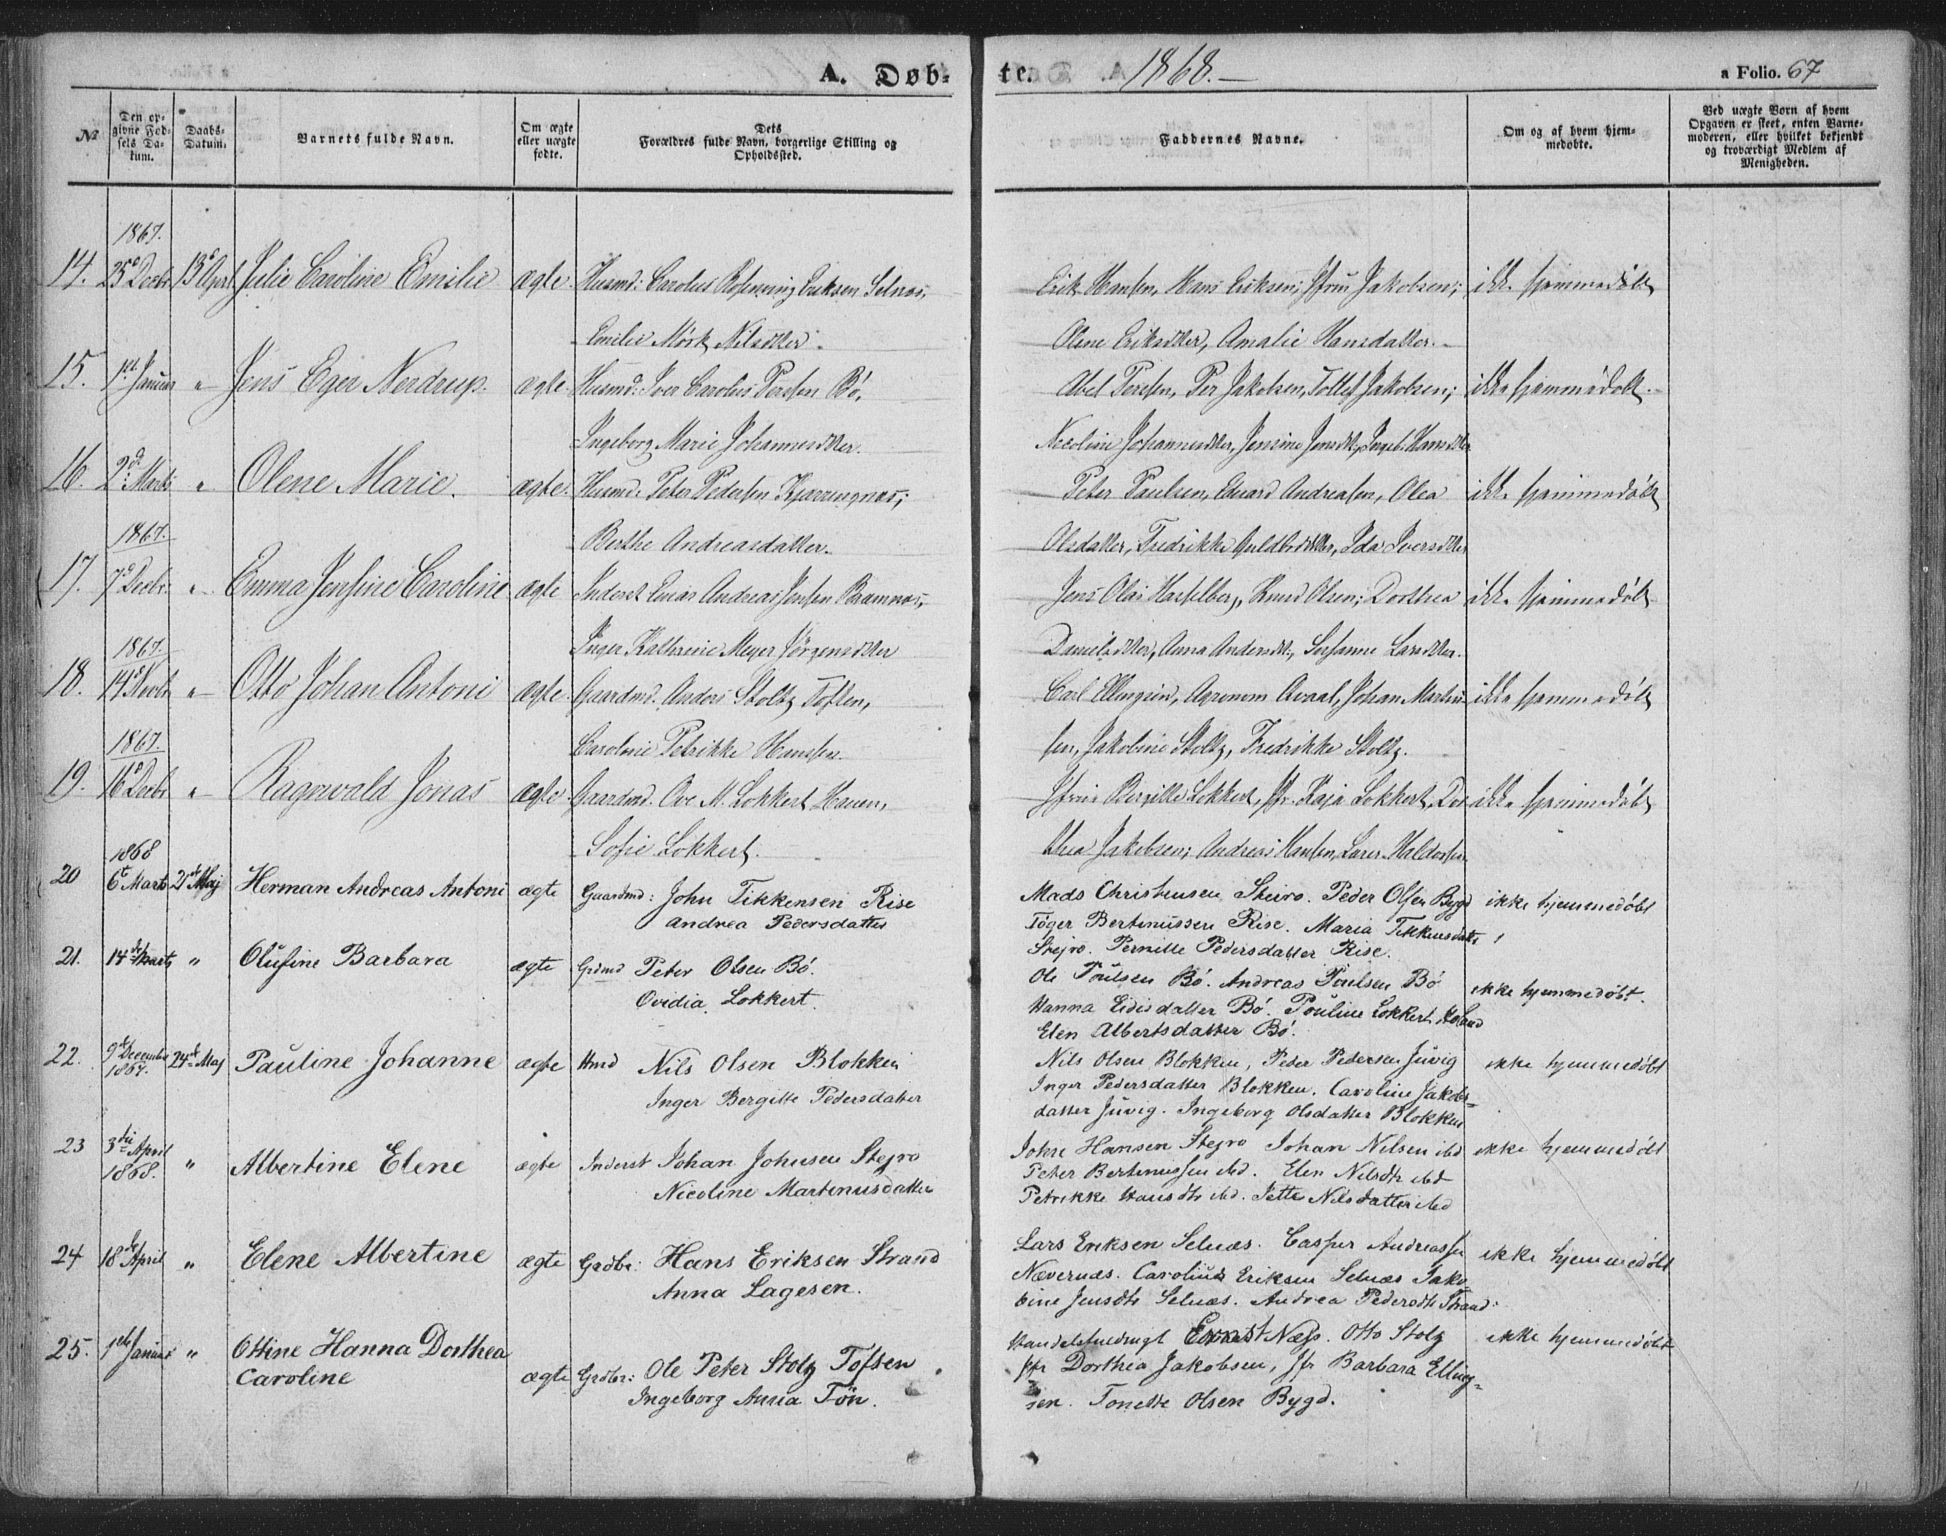 A. Døb- te. 1868.-
a Folio. 67
№
Den opgivne Fødsels Datum.
Daabs-Datum.
Barnets fulde Navn.
Om ægte eller uægte fødte.
Dets Forældres fulde Navn, borgerlige Stilling og Opholdssted.
Faddernes Navne.
Om og af hvem hjemmedøbte.
Ved uægte Børn af hvem Opgaven er skeet, enten Barnemoderen, eller hvilket bekjendt og troværdigt Medlem af Menigheden.
1867.
14. 25de Decbr 13de April Julie Caroline Emilie ægte Husmd: Carolus Eriksen Selnæs, Erik Hansen, Hans Eriksen, Jfru Jakobsen; ikke hjemmedøbt
Emilie Mørk Nilsdtter. Olene Eriksdtter, Amalie Hansdatter.
15. 1ste Januar " Jens Eger Nordrup. ægte Husmd: Iver Carolus Persen Bö, Abel Persen, Per Jakobsen, Tollef Jakobsen; ikke hjemmedøbt.
Ingeborg Marie Johannesdtter. Nicoline Johannesdtter, Jensine Jensdtr, Ingeb. Hansdtter
16. 2den Marts " Olene Marie. ægte. Husmd: Peter Pedersen Kjerringnæs; Peter Paulsen, Eduard Andreasen, Olea ikke hjemmedøbt
1867. Berthe Andreasdatter. Olsdatter, Fredrikke, Ida Iversdtter
17. 7de Decbr. " Emma Jensine Caroline ægte Inderst Andreas Jensen Bramnæs, Jens Olai Hasselberg, Knud Olsen; Dorthea ikke hjemmedøbt
1867. Inger Kathrine Meyer Jörgensdtter Danielsdtter, Anna Andersdtr, Susanne Larsdtter.
18. 14de Novbr " Otto Johan Antoni ægte Gaardmd. Anders Stoltz Toften, Carl Ellingsen, Agronom Avaal, Johan Martin- ikke hjemmedøbt
1867. Caroline Petrikke Hansen. sen, Jakobine Stoltz, Fredrikke Stoltz.
19. 16de Decbr " Ragnvald Jonas ægte Gaardmd. Ove M. Lokkert Haaen, Jfru Birgitte Lokkert, Jfr. Kaja Lokkert, Dor- ikke hjemmedøbt
Sofie Lokkert. thea Jakobsen; Andreas Hansen, Lars Haldorsen
1868
20 6te Marts 21de Maj Herman Andreas Antoni ægte Gaardmd: John Tikkensen Rise Mads Christensen Steiro. Peder Olsen Bygd ikke hjemmedøbt
Andrea Pedersdatter Töger Bertinussen Rise. Maria Tikkensdatter
Stejro. Pernille Pedersdatter Rise.
21. 14de Marts " Olufine Barbara ægte Grdmd Peter Olsen Bö. Ole Poulsen Bö. Andreas Poulsen Bö ikke hjemmedøbt.
Ovidia Lokkert. Hanna Eidisdatter Bö. Pouline Lokkert
Elen Albertsdatter Bö.
22. 9de December 1867. 24de Maj Pauline Johanne ægte Hmd Nils Olsen Blokken Nils Olsen Blokken, Peder Pedersen Juvig ikke hjemmedøbt
Inger Bergitte Pedersdatter Inger Pedersdatter Blokken. Caroline Jakobs-
datter Juvig. Ingeborg Olsdatter Blokken
23 3die April 1868. " Albertine Elene ægte Inderst Johan Johnsen Stejro John Hansen Stejro Johan Nilsen ibd ikke hjemmedøbt
Nicoline Martinusdatter Peter Bertinussen ibd. Elen Nilsdtr ibd
Petrikke Hansdtr ibd. Jette Nilsdatter ibd
24 18de April " Elene Albertine ægte Grdbr: Hans Eriksen Strand Lars Eriksen Selnæs. Casper Andreassen ikke hjemmedøbt
Anna Lagesen. Nævernæs. Carolius Eriksen Selnæs Jako-
bine Jensdtr Selnæs. Andrea Pedersdtr Strand.
25. 1ste Januar " Ottine Hanna Dorthea Caroline ægte Grdbr: Ole Peter Stolz Toften Handelsfuldmægt Ernst Næss. Otto Stolz ikke hjemmedøbt
Ingeborg Anna Tön. Jfr Dorthea Jakobsen, Jfr Barbara Elling-
sen. Tonette Olsen Bygd.